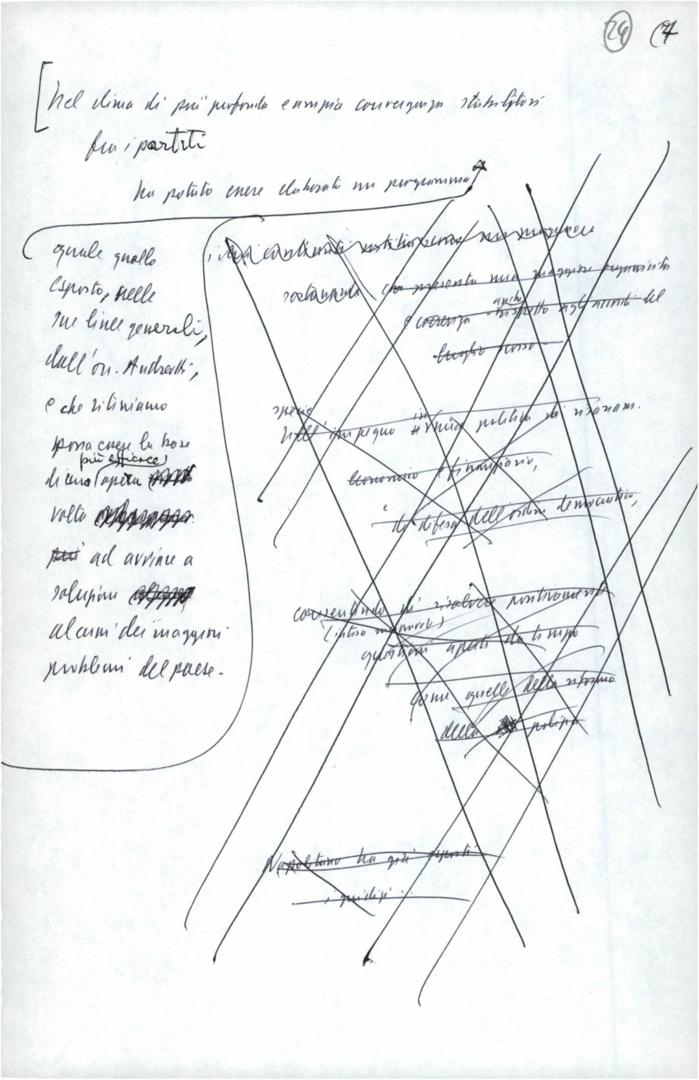 24 7
[Nel clima di più profonda e ampia convergenza stabilitosi
fra i partiti
ha potuto essere elaborato un programma
quale quello
esposto, nelle
sue linee generali,
dall'on. Andreotti,
e che riteniamo
possa essere la base
più efficace
di una opera
volta
più ad avviare a
soluzione
alcuni dei maggiori
problemi del paese.
sostanziale che presenta una maggiore organicità
e coerenza anche rispetto agli accordi del
luglio scorso
specie
nell'impegno in politica di risanam.
economico e finanziario,
e di difesa dell'ordine democratico,
consentendo di risolvere positivamente
questioni aperte da tempo
come quelle della riforma
della polizia
Napolitano ha già esposti
i giudizi ...